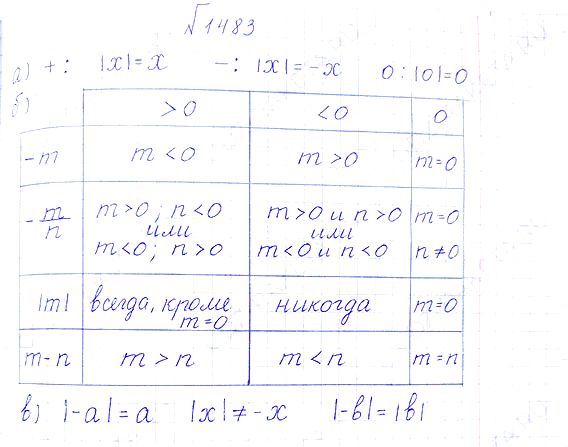 √1483
а) + : |x| = x − : |x| = −x 0 : |0| = 0
б)
>0 <0 0
−m m < 0 m > 0 m = 0
−m/n m > 0 ; n < 0 или m < 0 ; n > 0 m > 0 и n > 0 или m < 0 и n < 0 m = 0 n ≠ 0
|m| всегда, кроме m = 0 никогда m = 0
m − n m > n m < n m = n
в) |−a| = a |x| ≠ −x |−в| = |в|